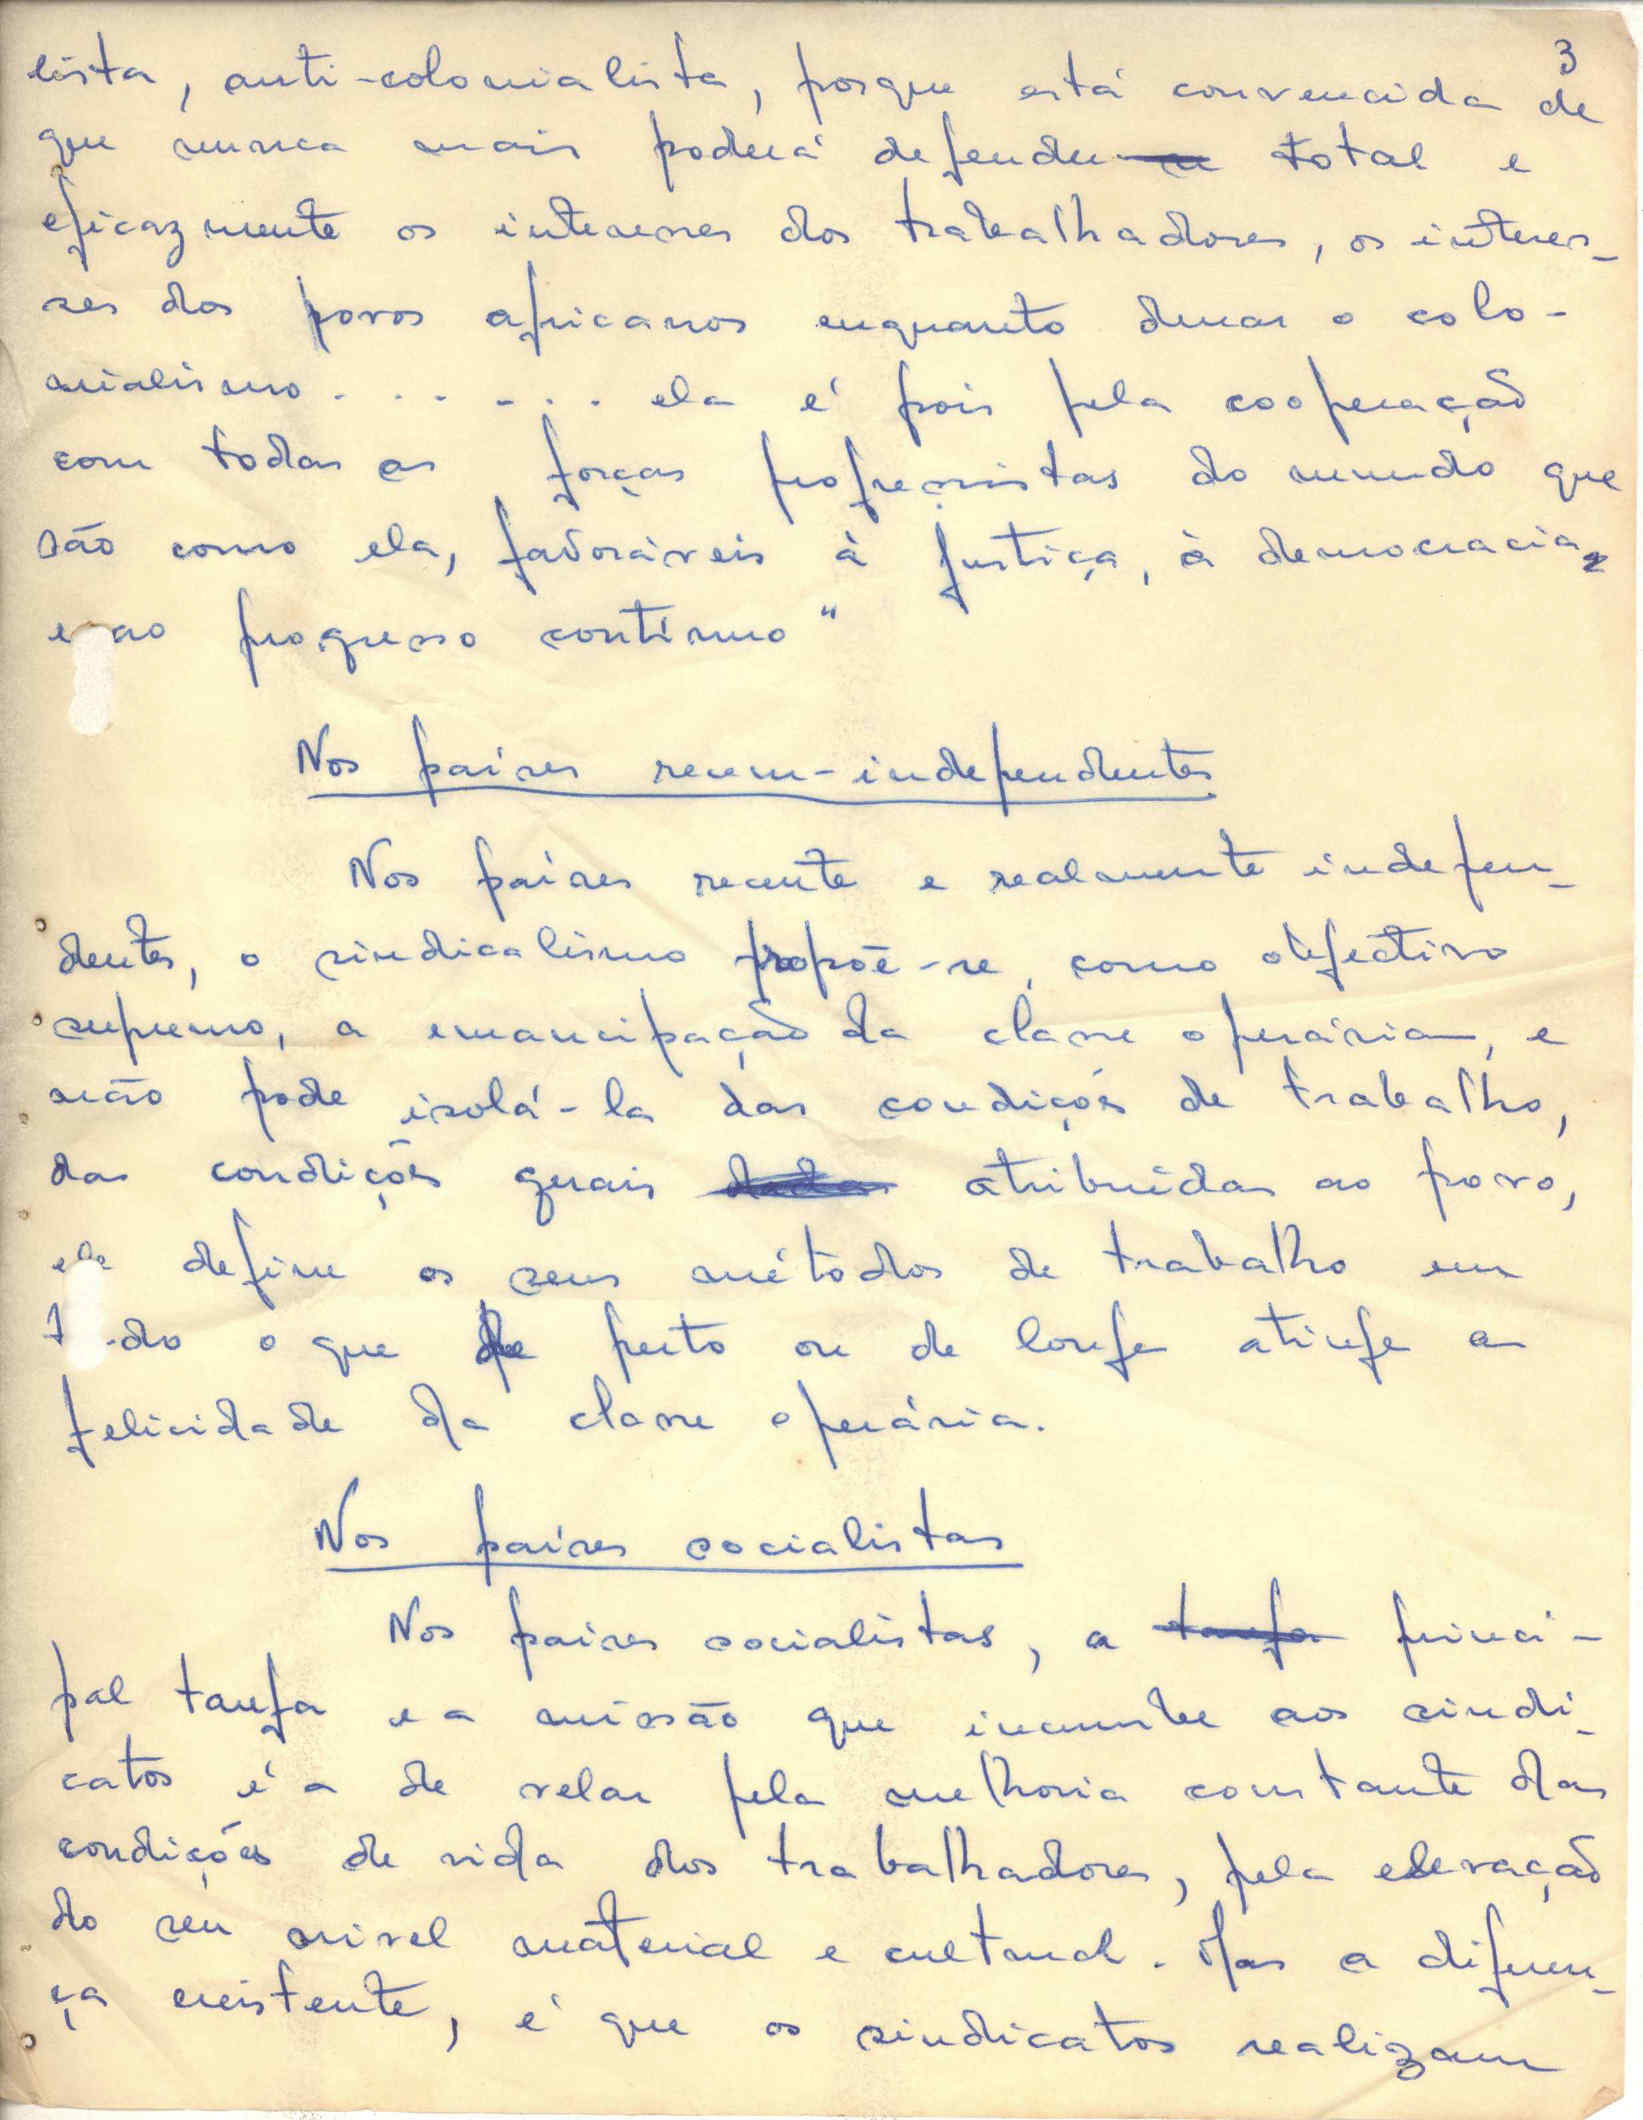 3
lista, anti-colonialista, porque está convencida de
que nunca mais poderá defender total e
eficazmente os interesses dos trabalhadores, os interes-
ses dos povos africanos enquanto durar o colo-
nialismo. . . . . . . ela é pois pela cooperação
com todas as forças progressistas do mundo que
são como ela, favoráveis à justiça, à democracia,
e ao progresso contínuo"
Nos países recem-independentes
Nos países recente e realmente indepen-
dentes, o sindicalismo propõe-se, como objectivo
supremo, a emancipação da classe operária, e
não pode isolá-la das condições de trabalho,
das condições gerais atribuidas ao povo,
ele define os seus métodos de trabalho em
tudo o que de perto ou de longe atinge a
felicidade da classe operária.
Nos países socialistas
Nos paises socialistas, a tarefa princi-
pal tarefa e a missão que incumbe aos sindi-
catos é a de velar pela melhoria constante das
condições de vida dos trabalhadores, pela elevação
do seu nivel material e cultural. Mas a diferen-
ça existente, é que os sindicatos realizam